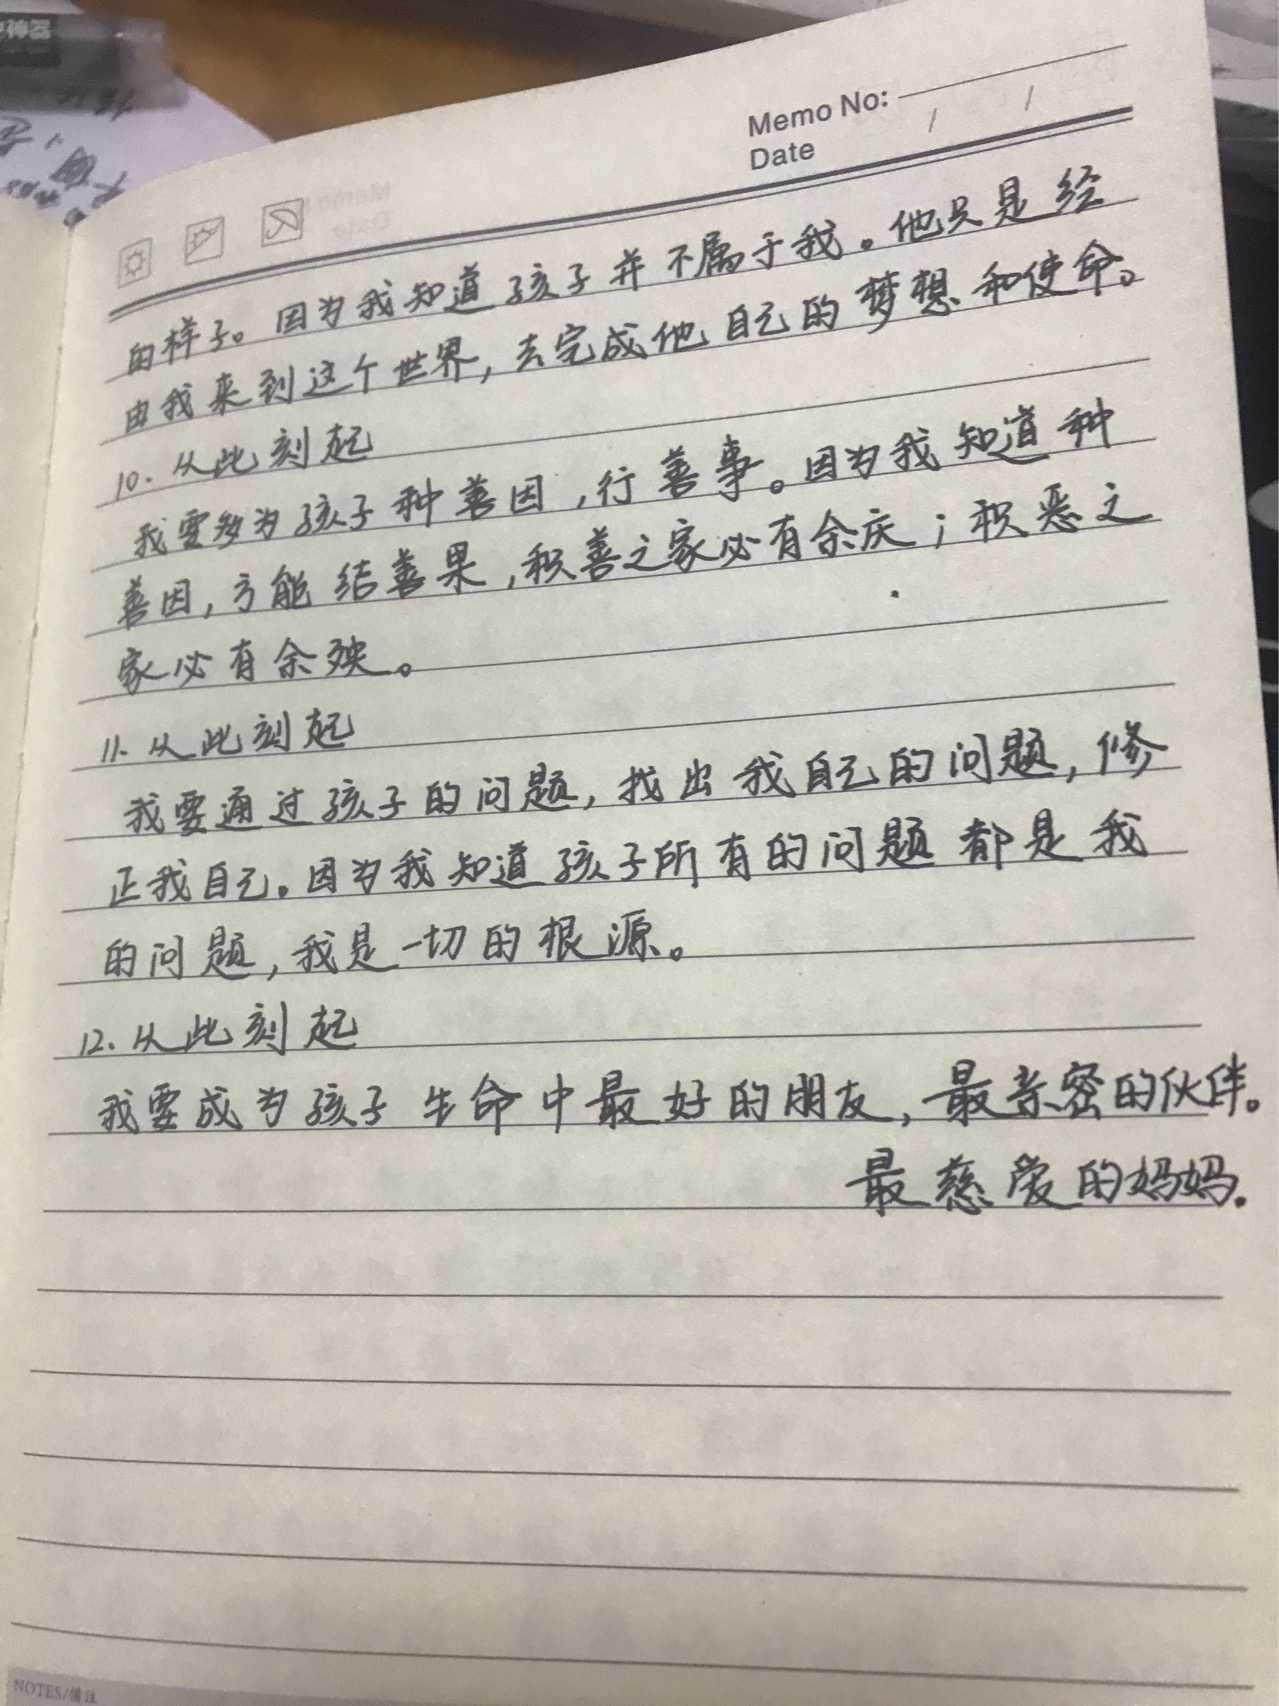 Memo No:
Date / /
的样子。因为我知道孩子并不属于我。他只是经
由我来到这个世界,去完成他自己的梦想和使命。
10. 从此刻起
我要多为孩子种善因,行善事。因为我知道种
善因,方能结善果,积善之家必有余庆;积恶之
家必有余殃。
11. 从此刻起
我要通过孩子的问题,找出我自己的问题,修
正我自己。因为我知道孩子所有的问题都是我
的问题,我是一切的根源。
12. 从此刻起
我要成为孩子生命中最好的朋友,最亲密的伙伴。
最慈爱的妈妈.
NOTES/備注